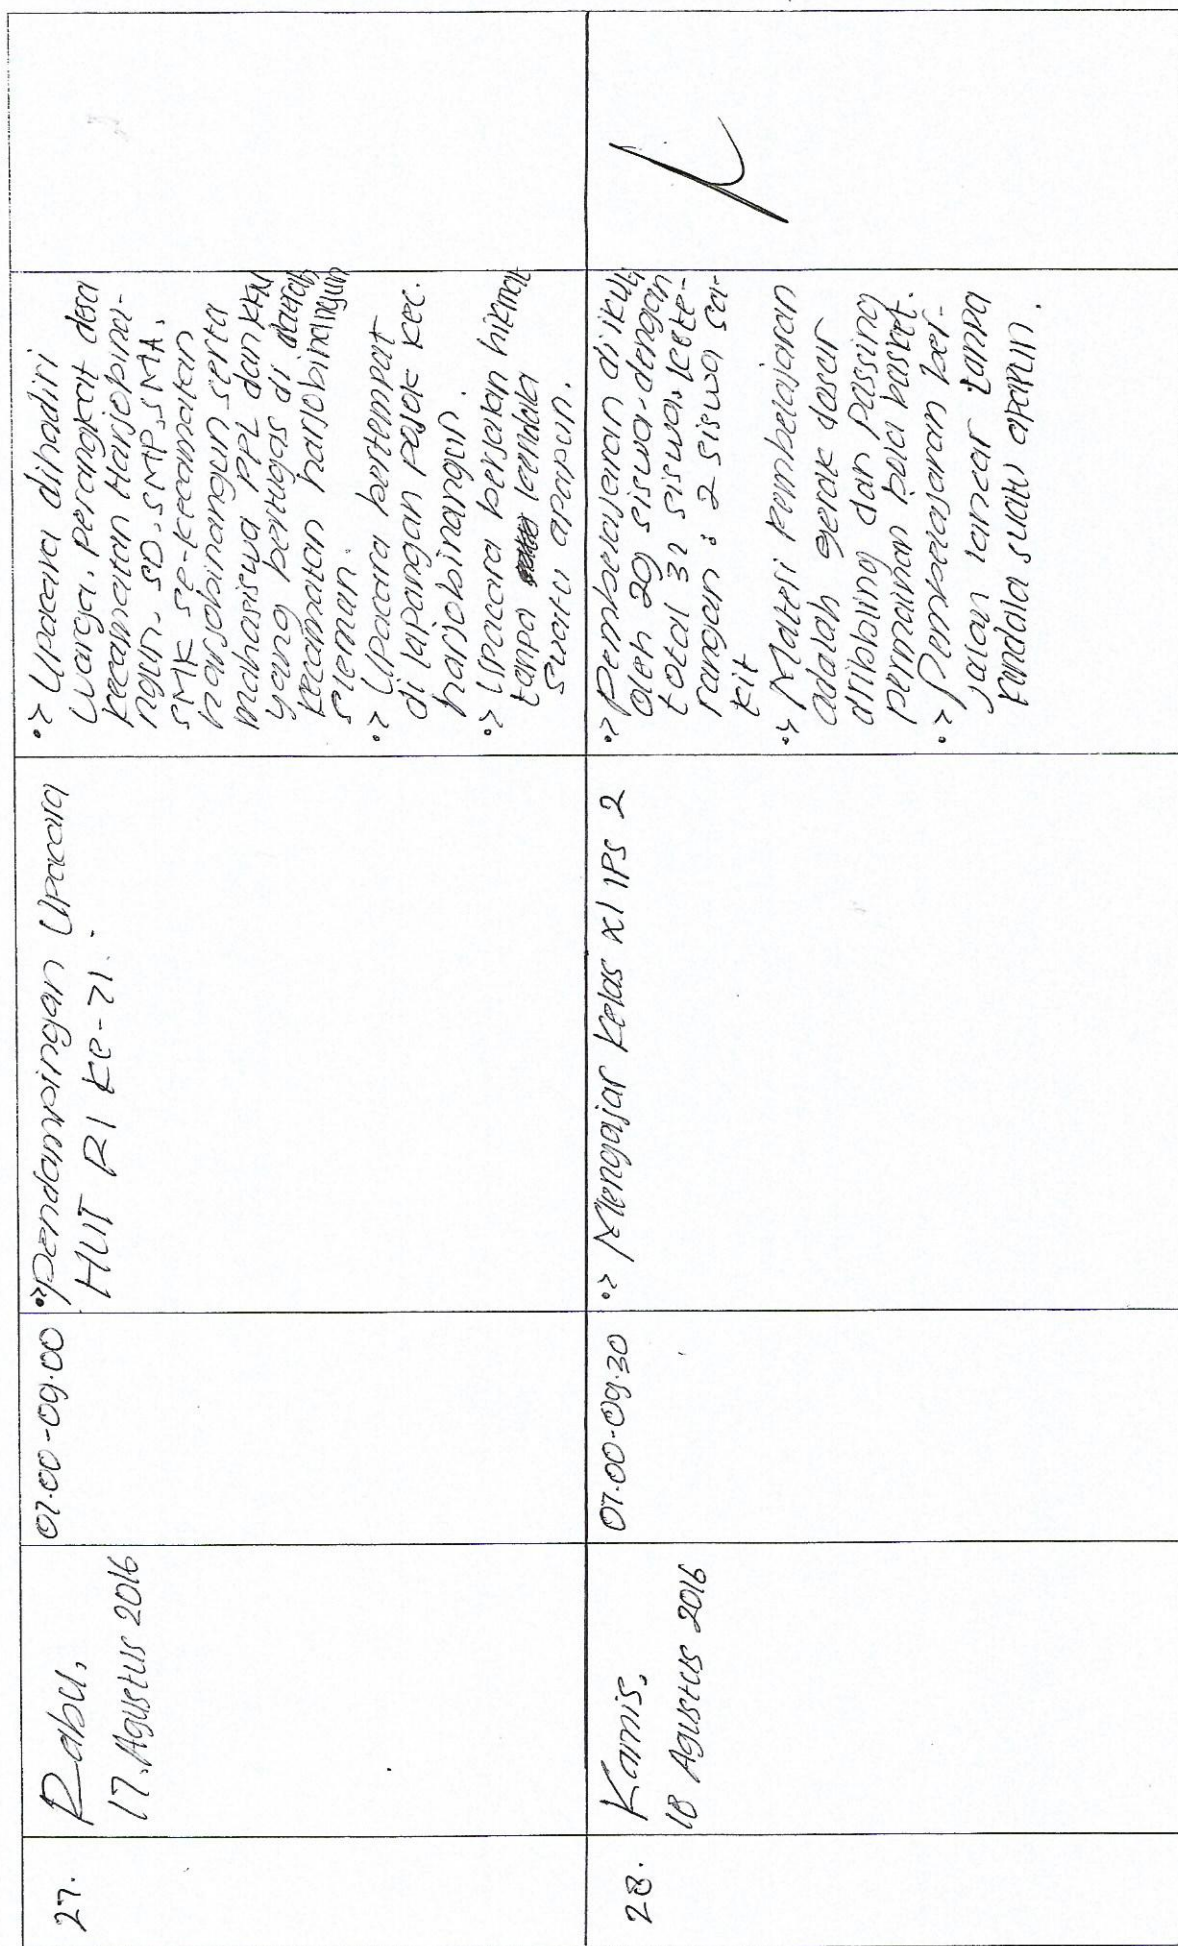 27.
Rabu,
17. Agustus 2016
07.00-09.00
•> Pendampingan Upacara
HUT RI ke-71.
•> Upacara dihadiri
warga, perangkat desa
kecamatan Harjobina-
ngun, SD, SMP, SMA,
SMK se-kecamatan
harjobinangun serta
mahasiswa PPL dan KKN
yang bertugas di daerah
kecamatan harjobinangun
sleman.
•> Upacara bertempat
di lapangan kec.
harjobinangun.
•> Upacara berjalan hikmat
tanpa kendala
suatu apapun.
28.
Kamis,
18 Agustus 2016
07.00-09.30
•> Mengajar Kelas XI IPS 2
•> Pembelajaran diikuti
oleh 29 siswa dengan
total 32 siswa, kete-
rangan : 2 siswa sa-
kit
•> Materi Pembelajaran
adalah gerak dasar
dribbling dan passing
permainan bola basket.
•> Pembelajaran ber-
jalan lancar tanpa
kendala suatu apapun.